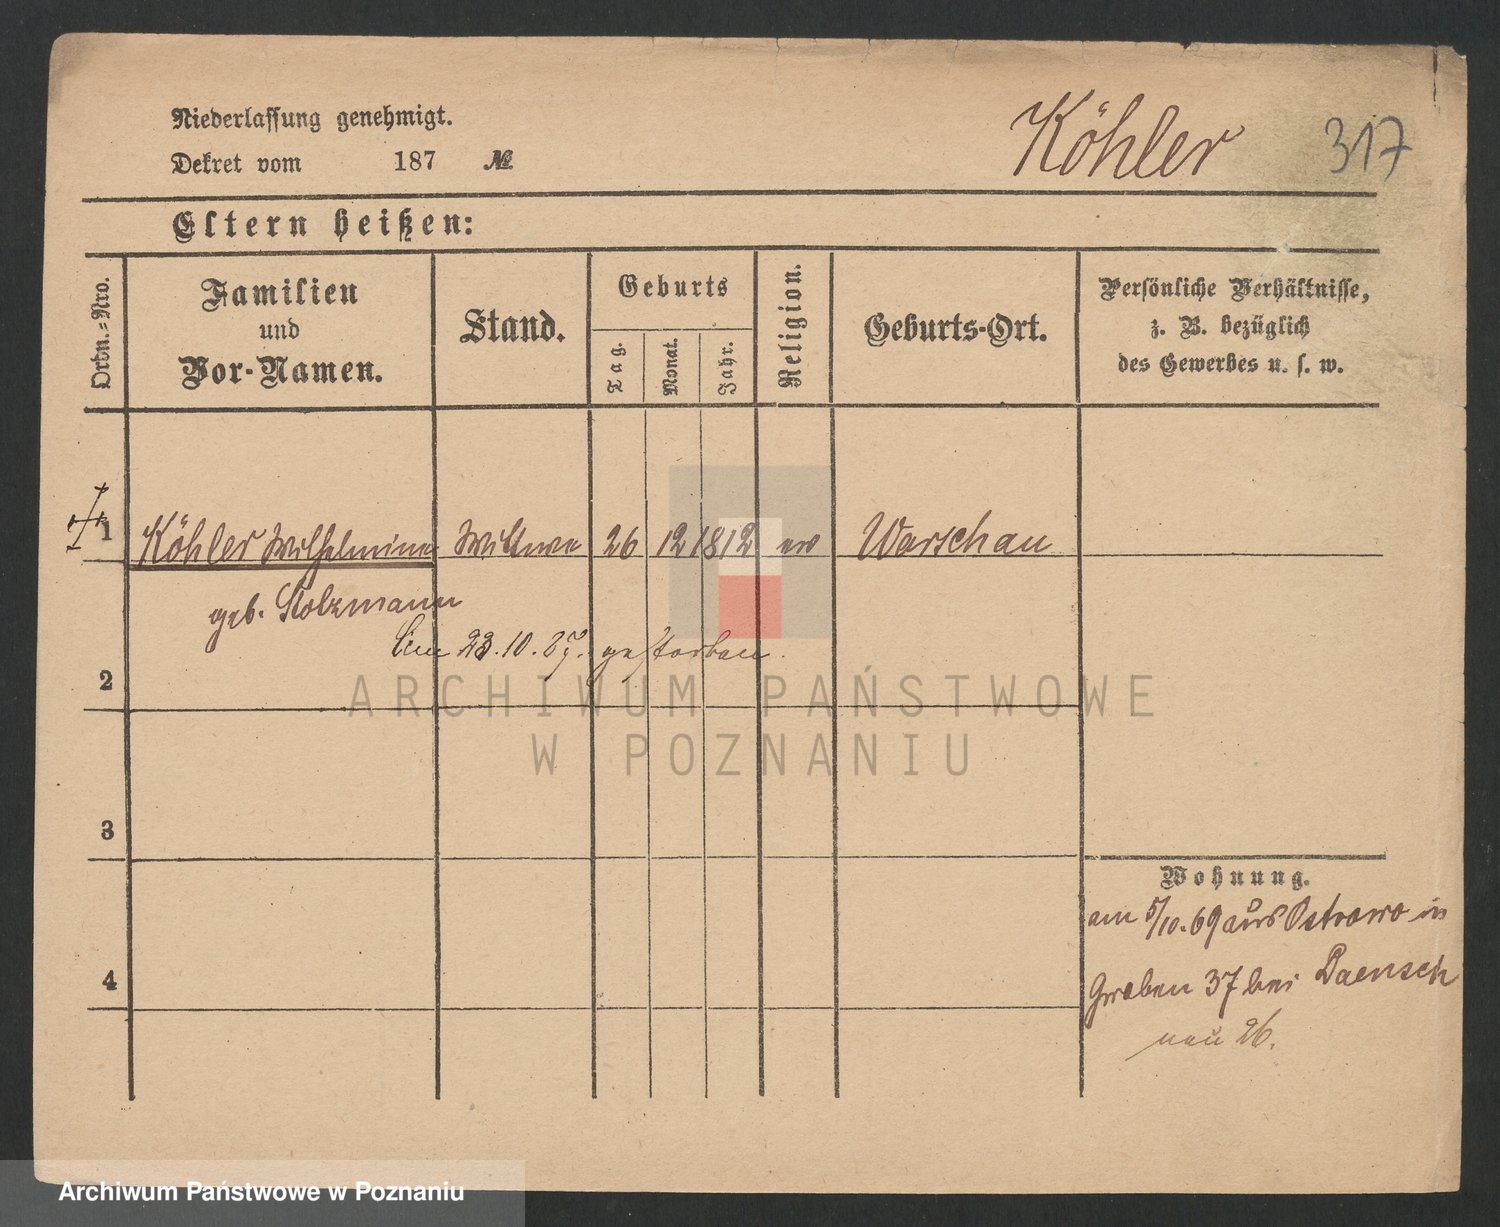 Niederlassung genehmigt.
Köhler 317
Dekret vom 187 №
Eltern heißen:
Ordn.=Nro.
Familien
und
Vor-Namen.
Stand.
Geburts
Tag.
Monat.
Jahr.
Religion.
Geburts-Ort.
Persönliche Verhältnisse,
z. B. bezüglich
des Gewerbes u. s. w.
1 Köhler Wilhelmine Wittwe 26 12 1812 ev Warschau
geb. Stolzmann
Am 23.10.87. gestorben.
2
ARCHIWUM PAŃSTWOWE
W POZNANIU
3
Wohnung.
am 5/10.69 aus Ostrowo in
4
Graben 37 bei Daensch
neu 26.
Archiwum Państwowe w Poznaniu